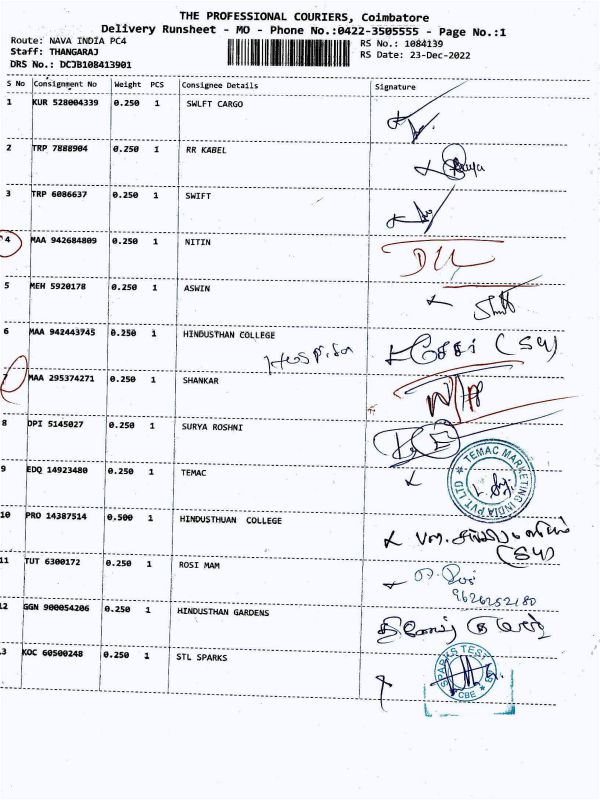 THE PROFESSIONAL COURIERS, Coimbatore
Delivery Runsheet - MO - Phone No.:0422-3505555 - Page No.:1
Route: NAVA INDIA PC4
RS No.: 1084139
Staff: THANGARAJ
RS Date: 23-Dec-2022
DRS No.: DCJB108413901
S No Consignment No Weight PCS Consignee Details Signature
1 KUR 528004339 0.250 1 SWLFT CARGO
2 TRP 7888904 0.250 1 RR KABEL
3 TRP 6086637 0.250 1 SWIFT
4 MAA 942684809 0.250 1 NITIN
5 MEH 5920178 0.250 1 ASWIN
6 MAA 942443745 0.250 1 HINDUSTHAN COLLEGE
7 MAA 295374271 0.250 1 SHANKAR
8 DPI 5145027 0.250 1 SURYA ROSHNI
9 EDQ 14923480 0.250 1 TEMAC
TEMAC MARKETING INDIA PVT LTD
10 PRO 14387514 0.500 1 HINDUSTHUAN COLLEGE
11 TUT 6300172 0.250 1 ROSI MAM
9626252180
12 GGN 900054206 0.250 1 HINDUSTHAN GARDENS
13 KOC 60500248 0.250 1 STL SPARKS
SPARKS TEST
CBE